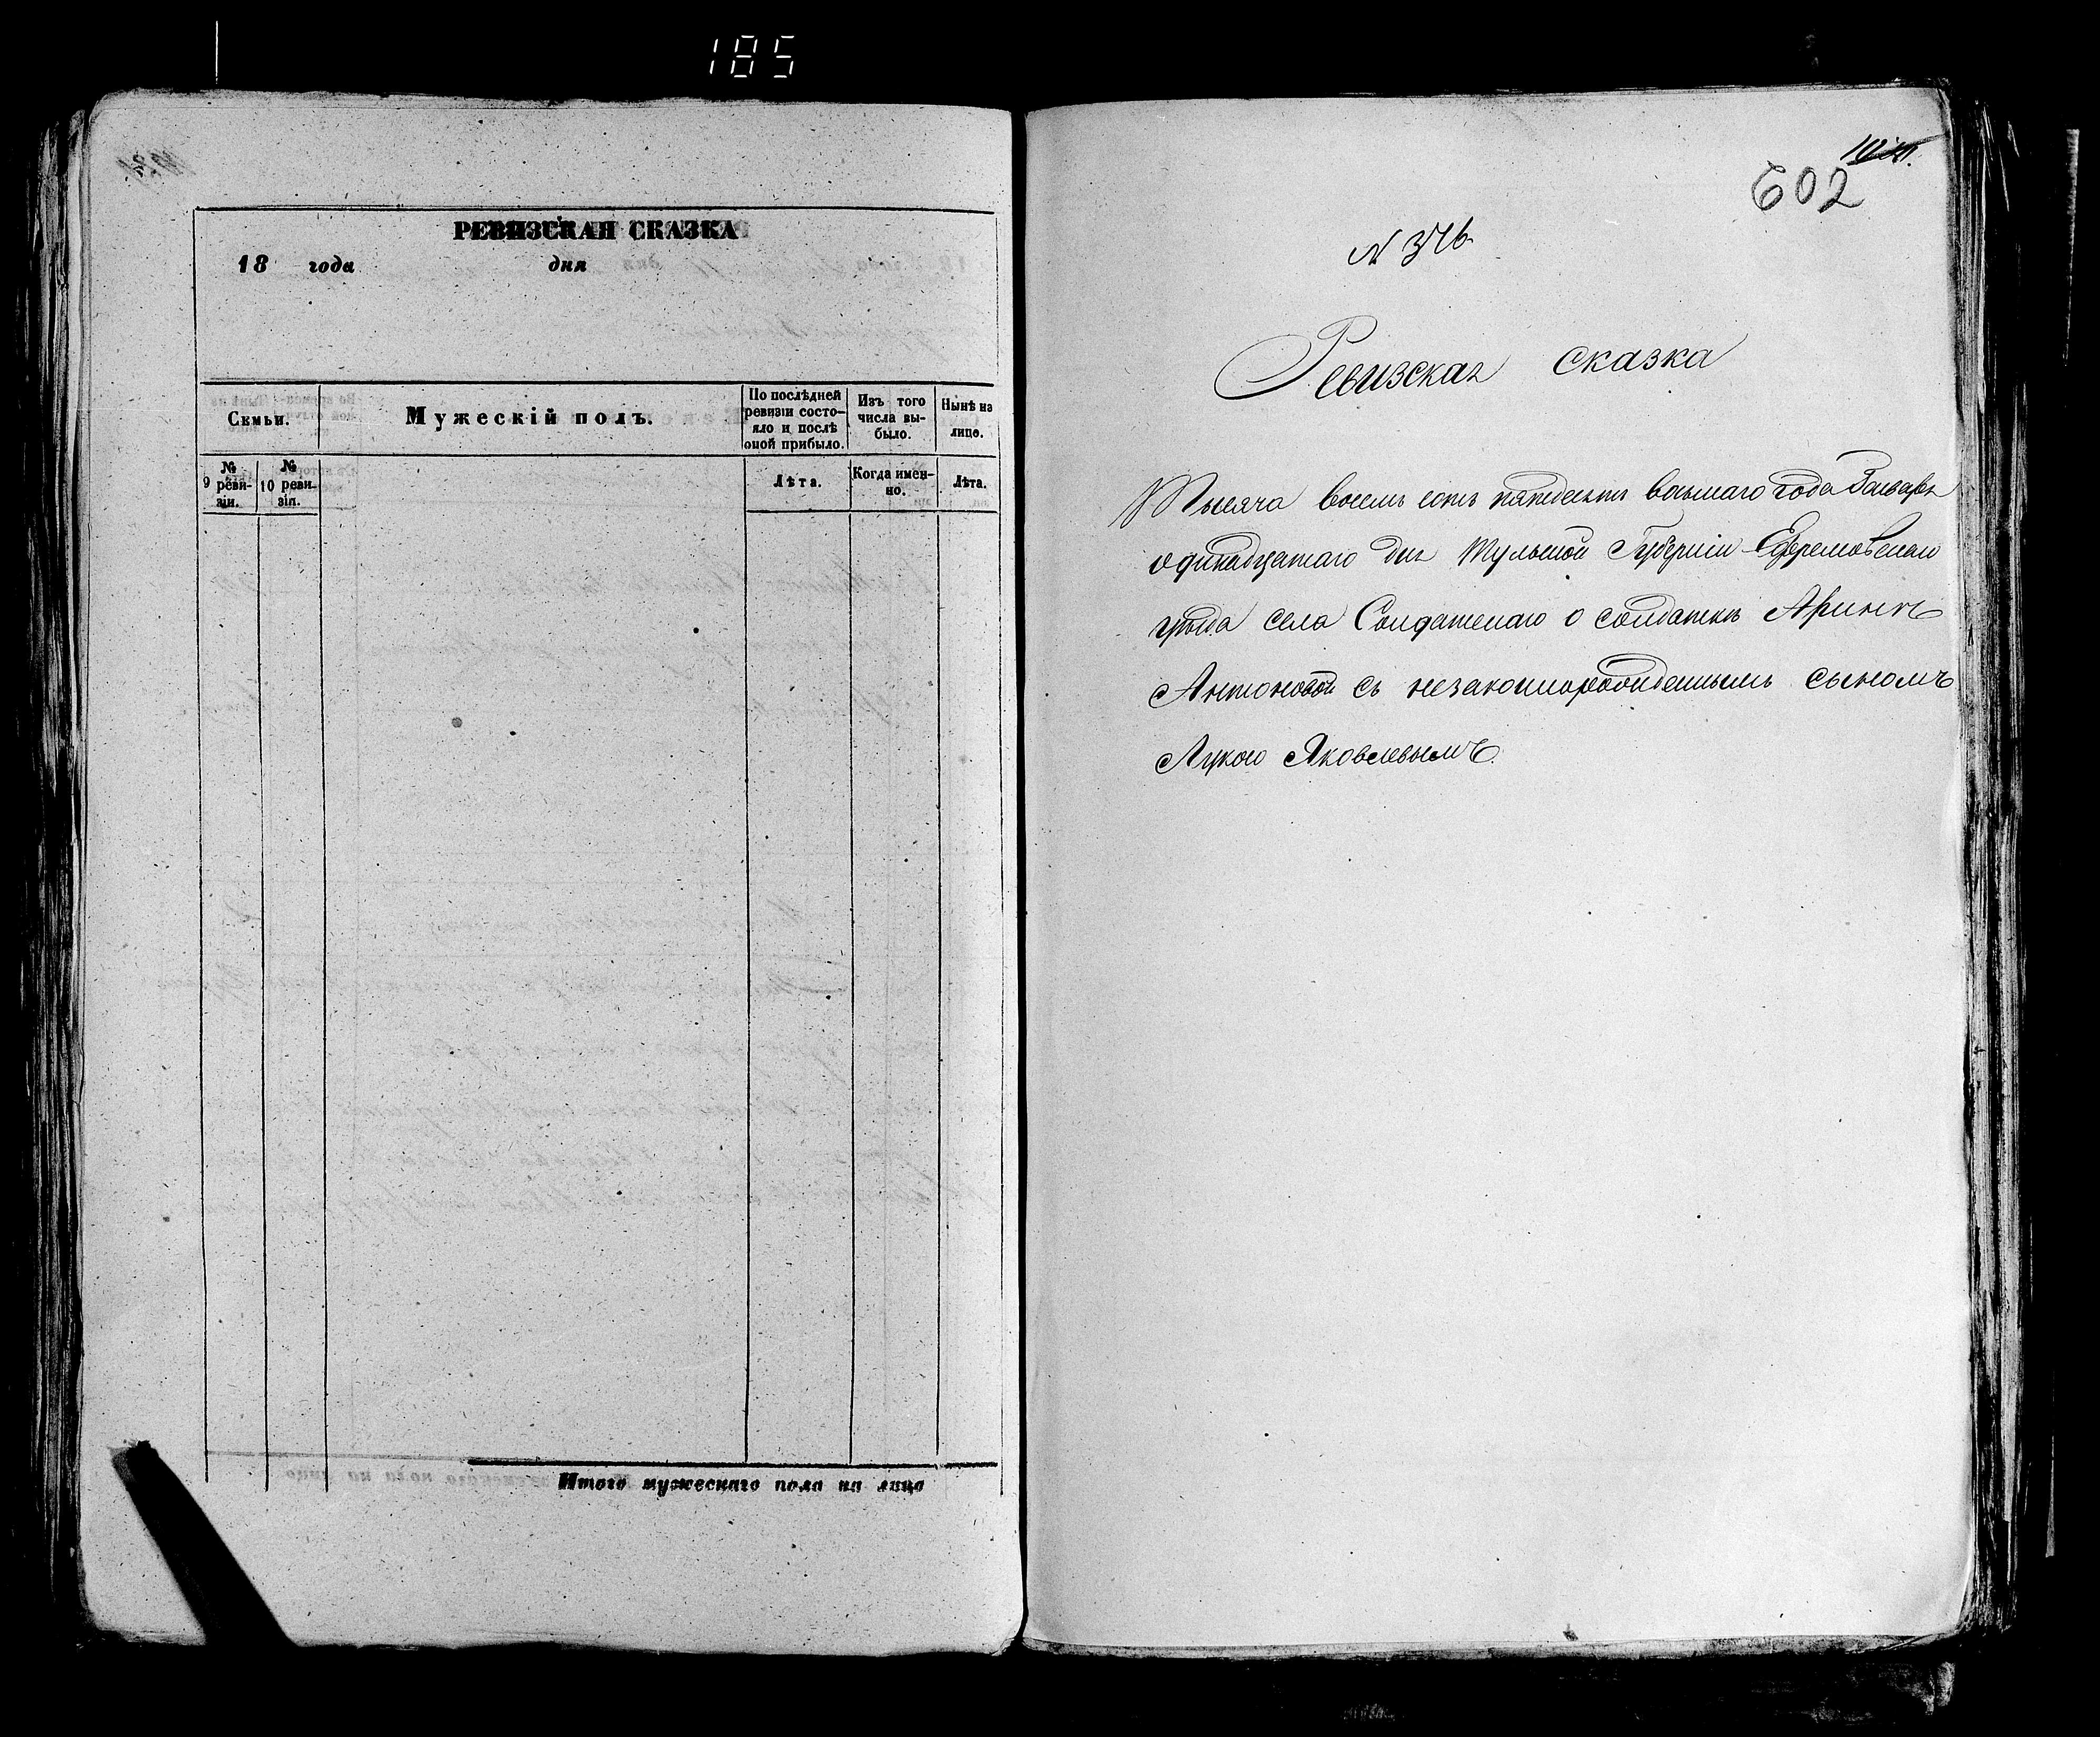 185
РЕВИЗСКАЯ СКАЗКА
18 года дня
Семьи.
Мужескій полъ.
По послѣдней ревизіи состо-яло и послѣ оной прибыло.
Изъ того числа вы-было.
Нынѣ на лице.
№ 9 реви-зіи.
№ 10 реви-зіи.
Лѣта.
Когда имен-но.
Лѣта.
Итого мужескаго пола на лицо
602
№ 376
Ревизская сказка
Тысяча восемь сотъ пятдесятъ восьмаго года Генваря
одинадцатаго дня Тульской Губерніи Ефремовскаго
уѣзда села Солдатскаго о солдаткѣ Аринѣ
Антоновой съ незаконнорожденнымъ сыномъ
Лукою Яковлевымъ.